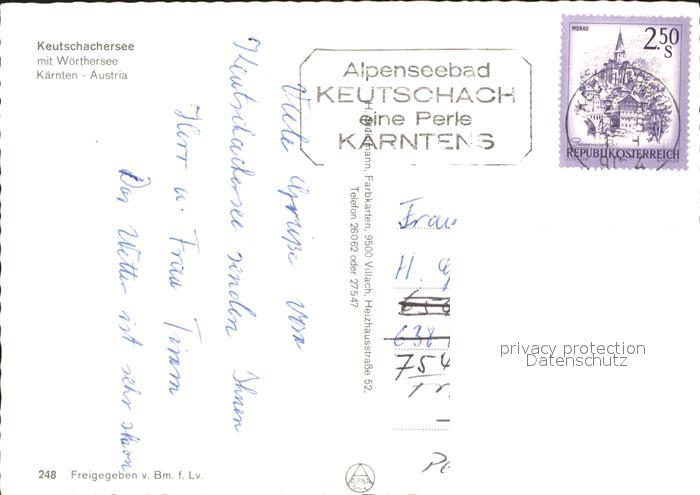 Keutschachersee
mit Wörthersee
Kärnten - Austria
Alpenseebad
KEUTSCHACH
eine Perle
KÄRNTENS
MURAU
2.50
S
REPUBLIK ÖSTERREICH
Viele Grüße vom
Keutschachersee senden Ihnen
Herr u. Frau Timm
Das Wetter ist sehr schön
Farbkarten, 9500 Villach, Heizhausstraße 52,
Telefon 26062 oder 27547
Frau
H.
638
754
privacy protection
Datenschutz
248 Freigegeben v. Bm. f. Lv.